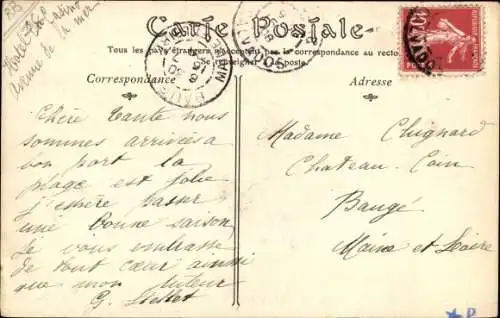 Hotel
avenue de la mer
Carte Postale
Tous les pays étrangers n'acceptent pas la correspondance au recto
Se renseigner à la poste.
Correspondance
Adresse
Chère Tante nous
sommes arrivées a
bon port la
plage est jolie
j'espère passer
une bonne saison
Je vous embrasse
de tout cœur ainsi
que mon tuteur
G.
Madame Chignard
Chateau-Coin
Baugé
Maine et Loire